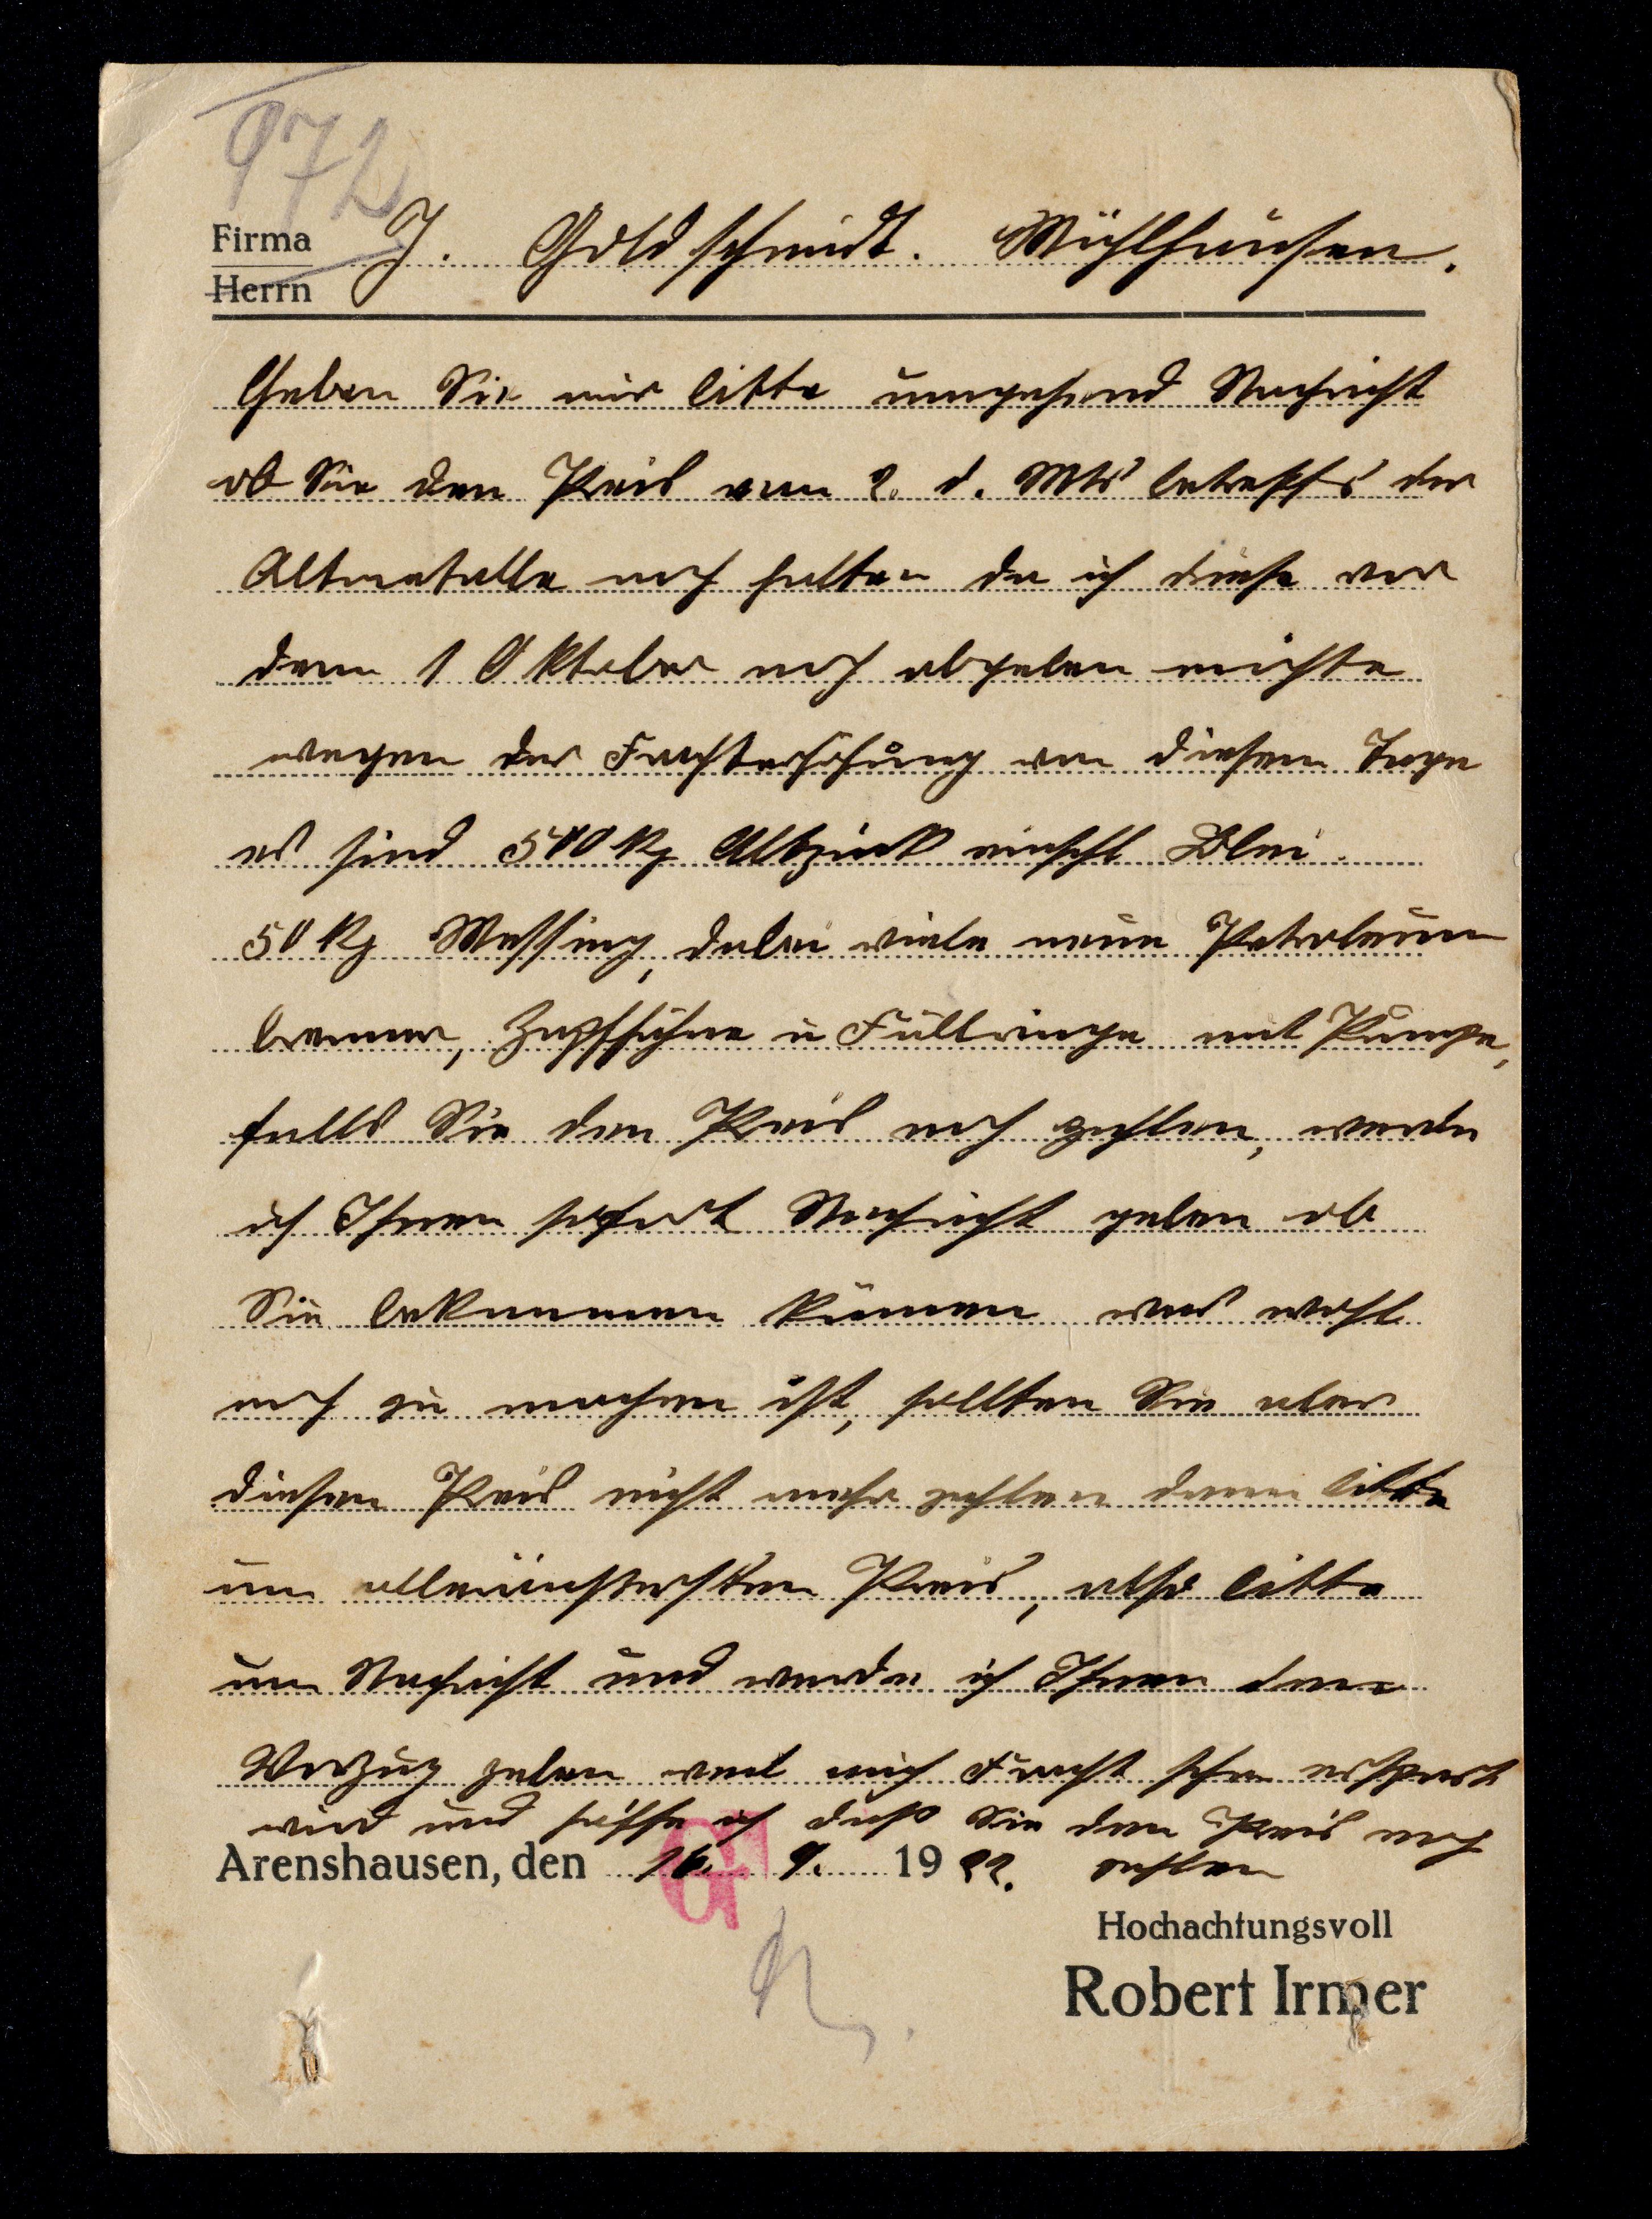 972
Firma
Herrn
J. Goldschmidt. Mühlhausen.
Geben Sie mir bitte umgehend Nachricht
ob Sie den Preis vom 2. d. Mts betreffs der
Altmetalle noch halten da ich diese vor
dem 1 Oktober noch abgeben möchte
wegen der Frachterhöhung von diesem Tage
es sind 500 kg Altzink einschl Blei.
50 kg Messing, dabei viele neue Petroleum
brenner, Zapfhähne u Füllringe mit Pumpe,
falls Sie den Preis noch zahlen, werde
ich Ihnen sofort Nachricht geben ob
Sie bekommen können was wohl
noch zu machen ist, sollten Sie aber
diesen Preis nicht mehr zahlen dann bitte
um alleräussersten Preis, also bitte
um Nachricht und werde ich Ihnen den
Vorzug geben weil mich Fracht schon erspart
wird und hoffe ich daß Sie den Preis noch
zahlen
Arenshausen, den 16. 9. 1922.
G
Hochachtungsvoll
Robert Irmer